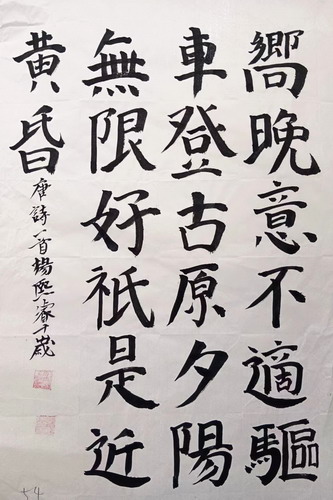 嚮晚意不適驅
車登古原夕陽
無限好祇是近
黃昏
唐詩一首楊熙睿十歲